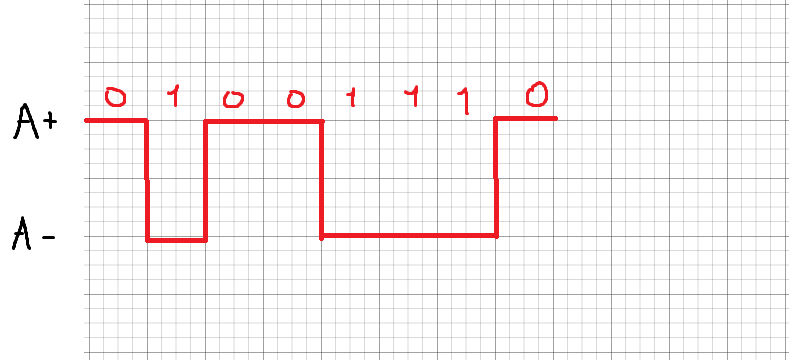 0 1 0 0 1 1 1 0
A+
A-